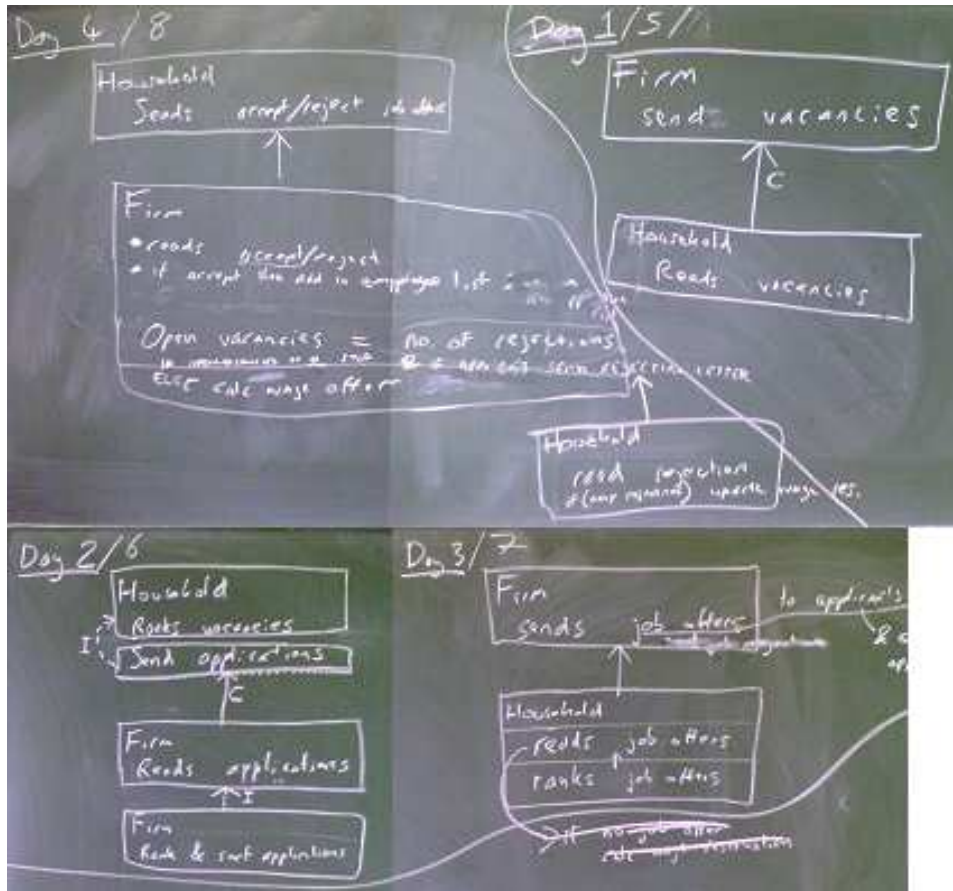 Day 4/8
Household
Sends accept/reject job
Firm
• reads accept/reject
• if accept then add in employee list
Open vacancies = no. of rejections
ELSE calc wage offer
Household
read rejection
update wage res.
Day 1/5/
Firm
send vacancies
C
Household
Reads vacancies
Day 2/6
Household
Ranks vacancies
I
Send applications
C
Firm
Reads applications
I
Firm
Rank & sort applications
Day 3/7
Firm
sends job offers
to applicants
&
Household
reads job offers
ranks job offers
If no job offer